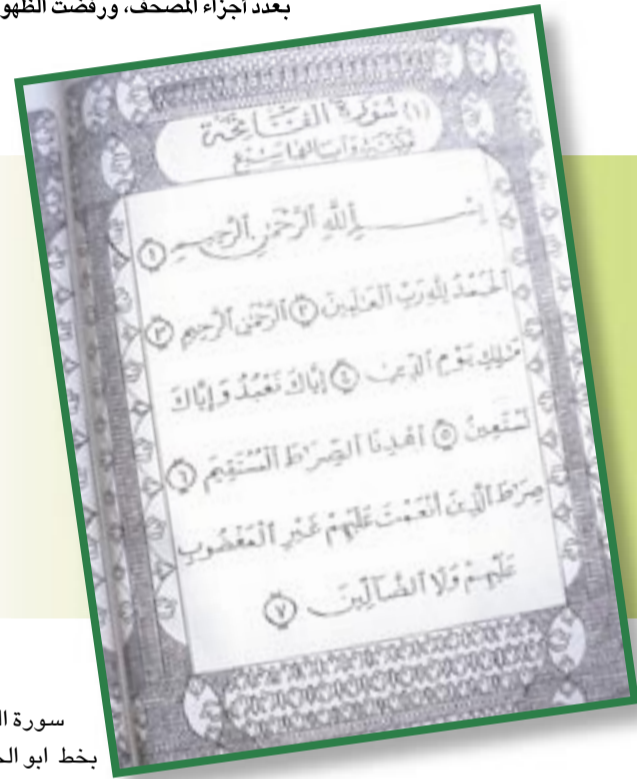 بعدد أجزاء المصحف، ورفضت الظهو
(١) سُورَةُ الفَاتِحَةِ
مَكِّيَّة وَآيَاتُهَا سَبْع
بِسْمِ ٱللَّهِ ٱلرَّحْمَٰنِ ٱلرَّحِيمِ ١
ٱلْحَمْدُ لِلَّهِ رَبِّ ٱلْعَٰلَمِينَ ٢ ٱلرَّحْمَٰنِ ٱلرَّحِيمِ ٣
مَٰلِكِ يَوْمِ ٱلدِّينِ ٤ إِيَّاكَ نَعْبُدُ وَإِيَّاكَ
نَسْتَعِينُ ٥ ٱهْدِنَا ٱلصِّرَٰطَ ٱلْمُسْتَقِيمَ ٦
صِرَٰطَ ٱلَّذِينَ أَنْعَمْتَ عَلَيْهِمْ غَيْرِ ٱلْمَغْضُوبِ
عَلَيْهِمْ وَلَا ٱلضَّآلِّينَ ٧
سورة ال
بخط ابو الح